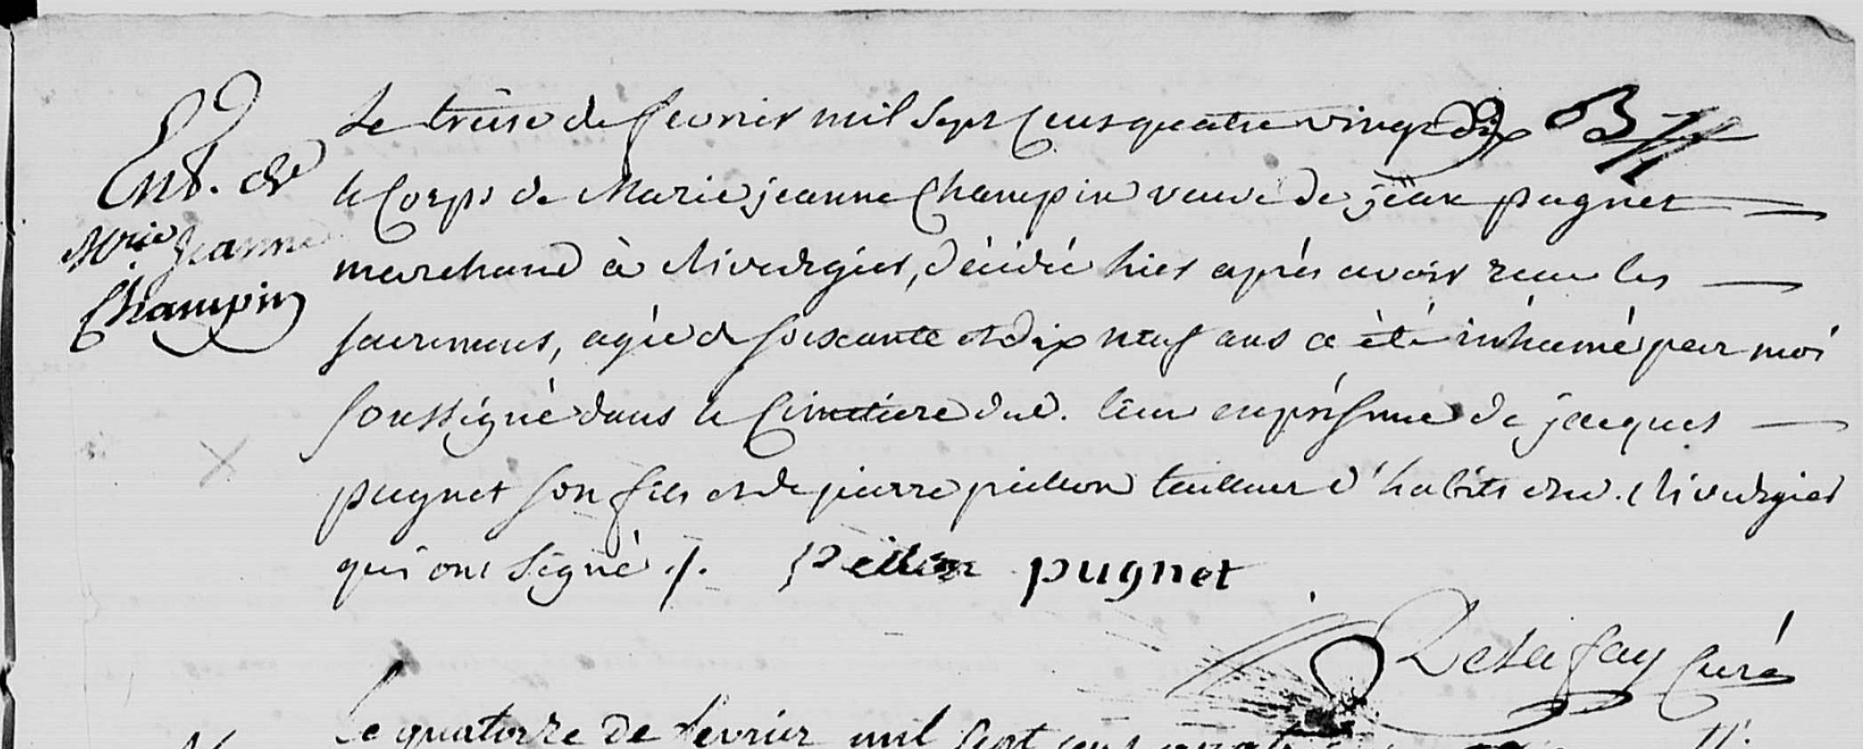 Ent. de
Mrie Jeanne
Champin
Le treise de fevrier mil sept cens quatre vingt dix
le Corps de Marie jeanne Champin veuve de jean pugnet
marchand à Rivedgier, décédée hier après avoir recu les
sacremens, agée de soixante et dix neuf ans a été inhumé par moi
soussigné dans le Cimetiere dud. lieu en présence de jacques
pugnet son fils et de pierre peillon tailleur d'habits aud. Rivedgier
qui ont signé ./. Peillon pugnet
Delafay Curé
Le quatorze de fevrier mil sept cens